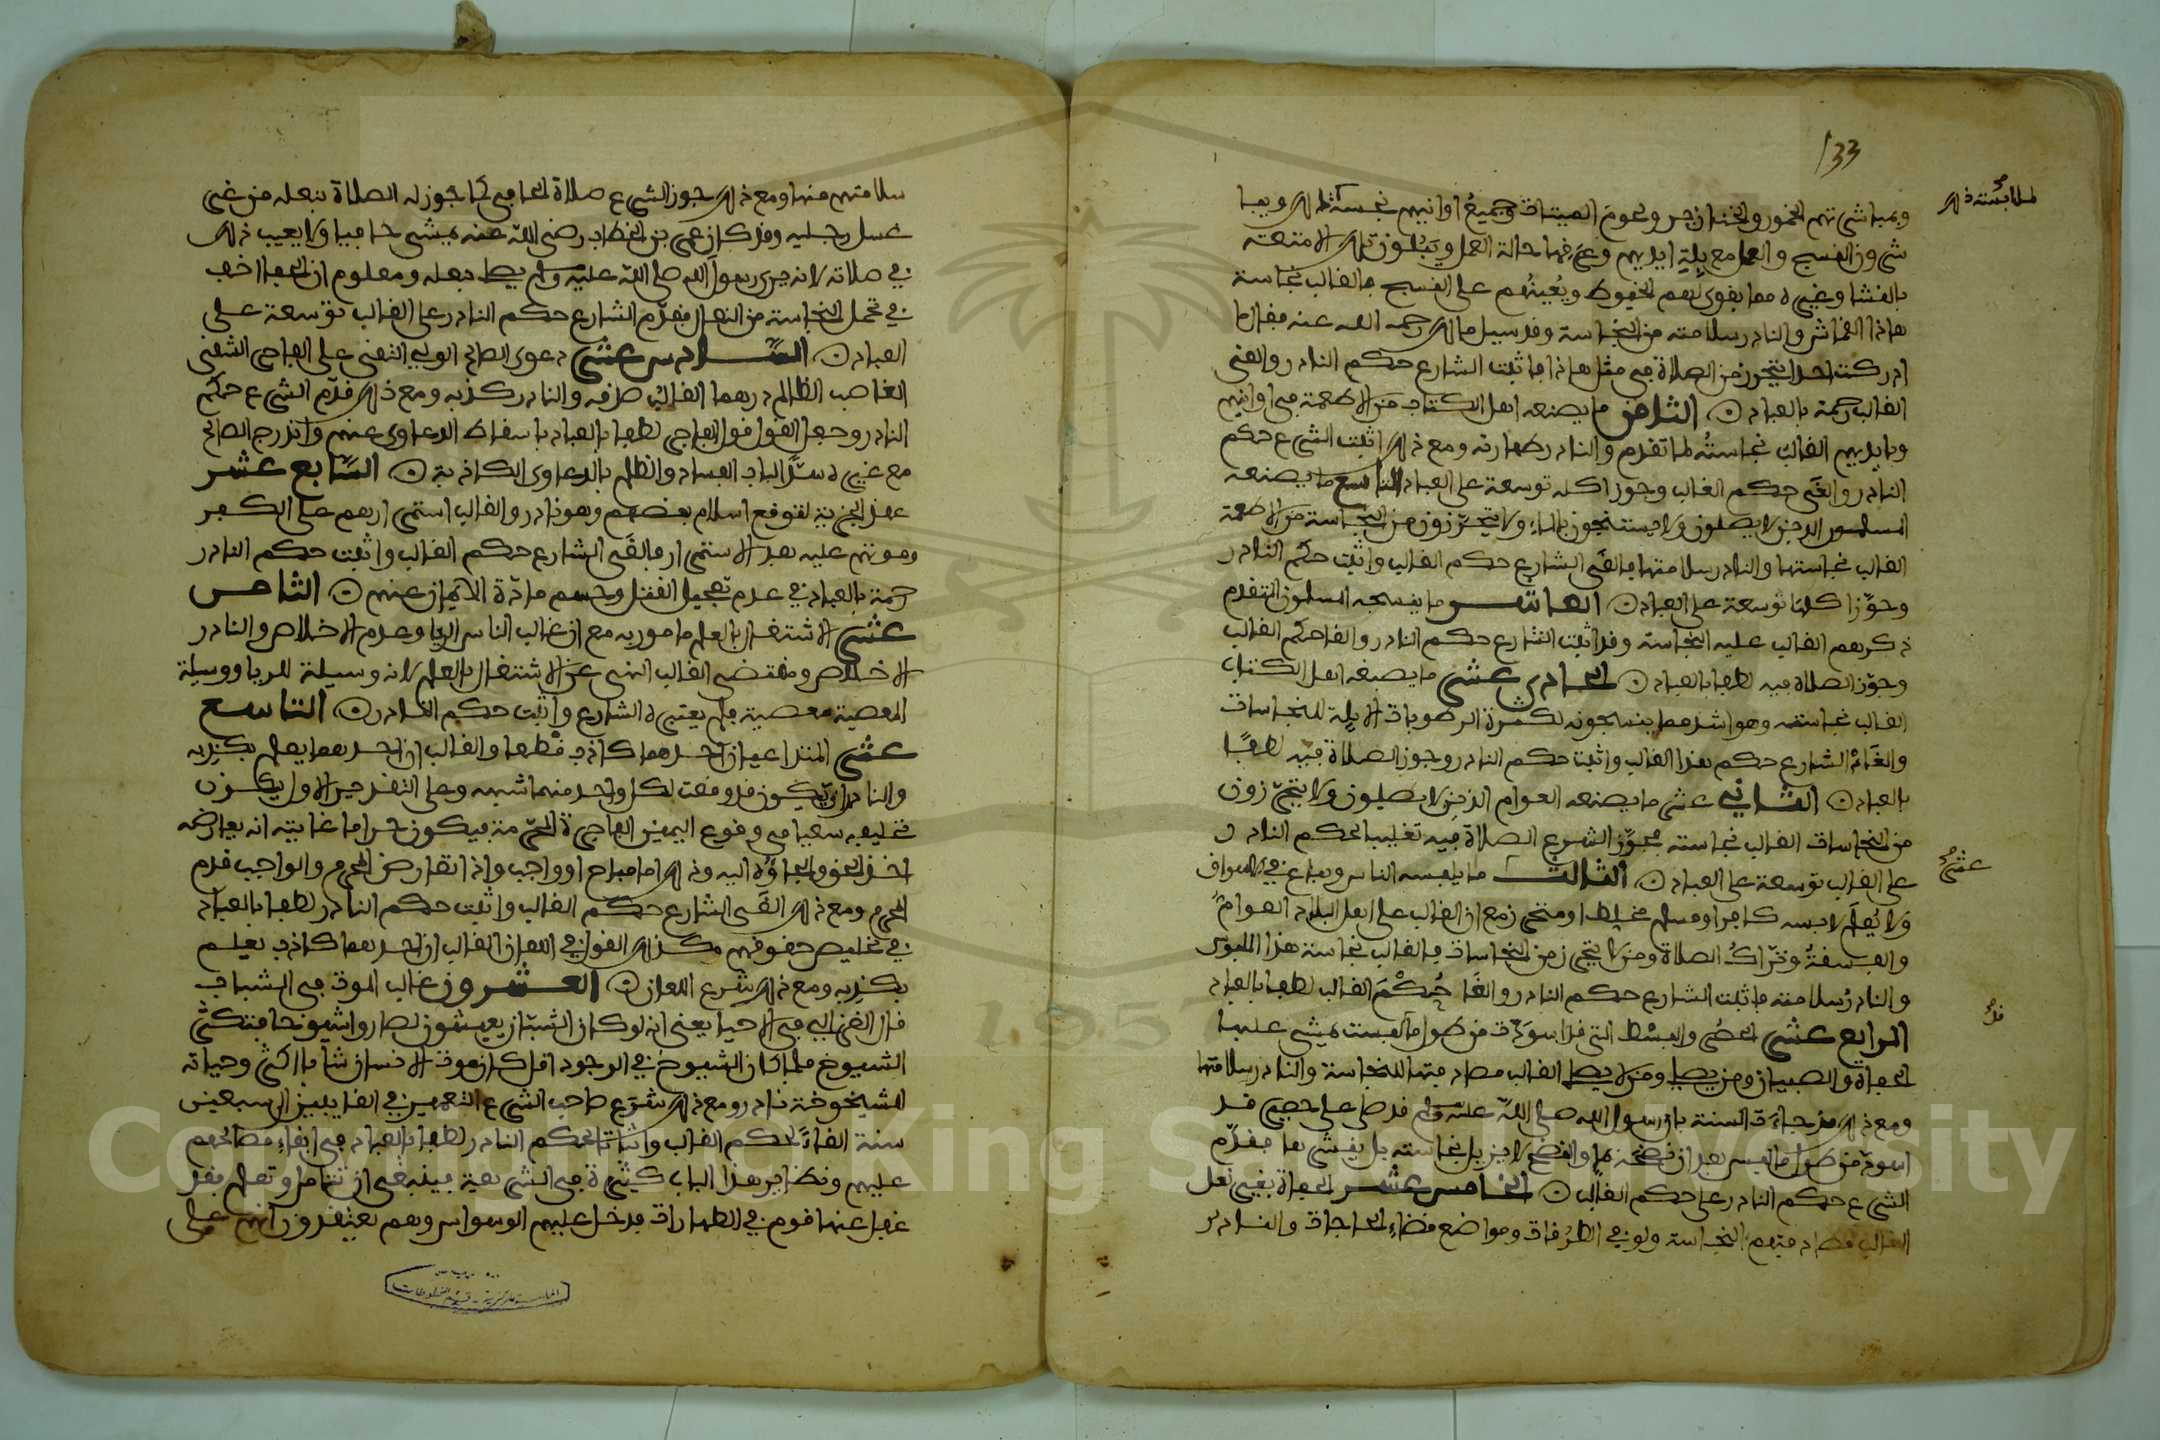 133
لملابسته ذلك
وبمباشرتهم الخمور والخنازير ولحوم الميتات وجميع اوانيهم نجسة لذلك ويبا
شرون النسج والعمل مع بلة ايديهم وعرقها حالة العمل ويبلون تلك الامتعة
بالنشا وغيره مما يقوي لهم الخيوط ويعينهم على النسج فالغالب نجاسة
هاذا القماش والنادر سلامته من النجاسة وقد سيل مالك رحمه الله عنه فقال ما
ادركت احدا يتحرز من الصلاة في مثل هاذا فاثبت الشارع حكم النادر والغى
الغالب رحمة بالعباد ۞ الثامن ما يصنعه اهل الكتاب من الاطعمة في اوانيهم
وبايديهم الغالب نجاسته لما تقدم والنادر طهارته ومع ذلك اثبت الشرع حكم
النادر والغى حكم الغالب وجوز اكله توسعة على العباد التاسع ما يصنعه
المسلمون الذين لا يصلون ولا يستنجون بالماء ولا يتحرزون من النجاسة من الاطعمة
الغالب نجاستها والنادر سلامتها فالغى الشارع حكم الغالب واثبت حكم النادر
وجوز اكلها توسعة على العباد ۞ العاشر ما ينسجه المسلمون المتقدم
ذكرهم الغالب عليه النجاسة وقد اثبت الشارع حكم النادر والغا حكم الغالب
وجوز الصلاة فيه لطفا بالعباد ۞ الحادي عشر ما يصبغه اهل الكتاب
الغالب نجاسته وهو اشد مما ينسجونه لكثرة الرطوبات الابلة للنجاسات
والغاء الشارع حكم هذا الغالب واثبت حكم النادر وجوز الصلاة فيه لطفا
بالعباد ۞ الثاني عشر ما يصنعه العوام الذين لا يصلون ولا يتحرزون
من النجاسات الغالب نجاسته فجوز الشرع الصلاة فيه تغليبا لحكم النادر
على الغالب توسعة على العباد ۞ الثالث ما يلبسه الناس ويباع في الاسواق
عشر
ولا يعلم لابسه كافر او مسلم مخلط او متحرز مع ان الغالب على اهل البلاد العوام
والفسقة وتراك الصلاة ومن لا يتحرز من النجاسات فالغالب نجاسة هذا الملبوس
والنادر سلامته فاثبت الشارع حكم النادر والغا حكم الغالب لطفا بالعباد
الرابع عشر الحصر والبسط التي قد اسودت من طول ما لبست يمشي عليها
قد
الحفاة والصبيان ومن يصل ومن لا يصل الغالب مصادفتها للنجاسة والنادر سلامتها
ومع ذلك قد جاءت السنة بان رسول الله صلى الله عليه وسلم قد صلى على حصير قد
اسود من طول ما لبس بعد ان نضحه بما والنضح لا يزيل نجاسته بل ينشرها فقدم
الشرع حكم النادر على حكم الغالب ۞ الخامس عشر الحفاة بغير نعل
الغالب مصادفتهم النجاسة ولو في الطرقات ومواضع قضاء الحاجات والنادر
سلامتهم منها ومع ذلك جوز الشرع صلاة الحافي كما جوز له الصلاة بنعله من غير
غسل رجليه وقد كان عمر بن الخطاب رضي الله عنه يمشي حافيا ولا يعيب ذلك
في صلاته لانه يرى رسول الله صلى الله عليه وسلم يصل بنعله ومعلوم ان الحفا اخف
في تحمل النجاسة من النعال فقدم الشارع حكم النادر على الغالب توسعة على
العباد ۞ السادس عشر دعوى الصالح الولي التقي على الفاجر الشقي
الغاصب الظالم درهما الغالب صدقه والنادر كذبه ومع ذلك قدم الشرع حكم
النادر وجعل القول قول الفاجر لطفا بالعباد باسقاط الدعاوى عنهم واندرج الصالح
مع غيره سدا لباب الفساد والظلم بالدعاوى الكاذبة ۞ السابع عشر
عقد الجزية لتوقع اسلام بعضهم وهو نادر والغالب استمرارهم على الكفر
وموتهم عليه بعد الاستمرار فالغى الشارع حكم الغالب واثبت حكم النادر
رحمة بالعباد في عدم تعجيل القتل وحسم مادة الايمان عنهم ۞ الثامن
عشر الاشتغال بالعلم مامور به مع ان غالب الناس الريا وعدم الاخلاص والنادر
الاخلاص ومقتضى الغالب النهي عن الاشتغال بالعلم لانه وسيلة للريا ووسيلة
المعصية معصية فلم يعتبره الشارع واثبت حكم النادر ۞ التاسع
عشر المتداعيان احدهما كاذب قطعا والغالب ان احدهما يعلم بكذبه
والنادر ان يكون قد وقعت لكل واحد منهما شبهة وعلى التقدير الاول يكون
تحليفه سعيا في وقوع اليمين الفاجرة المحرمة فيكون حراما غايته انه يعارضه
اخذ الحق والجاؤه اليه وذلك اما مباح او واجب واذا تعارض المحرم والواجب قدم
المحرم ومع ذلك الغى الشارع حكم الغالب واثبت حكم النادر لطفا بالعباد
في تخليص حقوقهم وكذلك القول في اللعان الغالب ان احدهما كاذب يعلم
بكذبه ومع ذلك شرع اللعان ۞ العشرون غالب الموت في الشباب
قال الغزالي في الاحيا يعني انه لو كان الشبان يعيشون لصاروا شيوخا فتكثر
الشيوخ فلما كان الشيوخ في الوجود اقل كان موت الانسان شابا اكثر وحياته
للشيخوخة نادر ومع ذلك شرع صاحب الشرع التعمير في الغايبين الى سبعين
سنة الغاء لحكم الغالب واثباتا لحكم النادر لطفا بالعباد في ابقاء مصالحهم
عليهم ونظاير هذا الباب كثيرة في الشريعة فينبغي ان تتامل وتعلم فقد
غفل عنها قوم في الطهارات فدخل عليهم الوسواس وهم يعتقدون انهم على
Copyright © King Saud University
1957